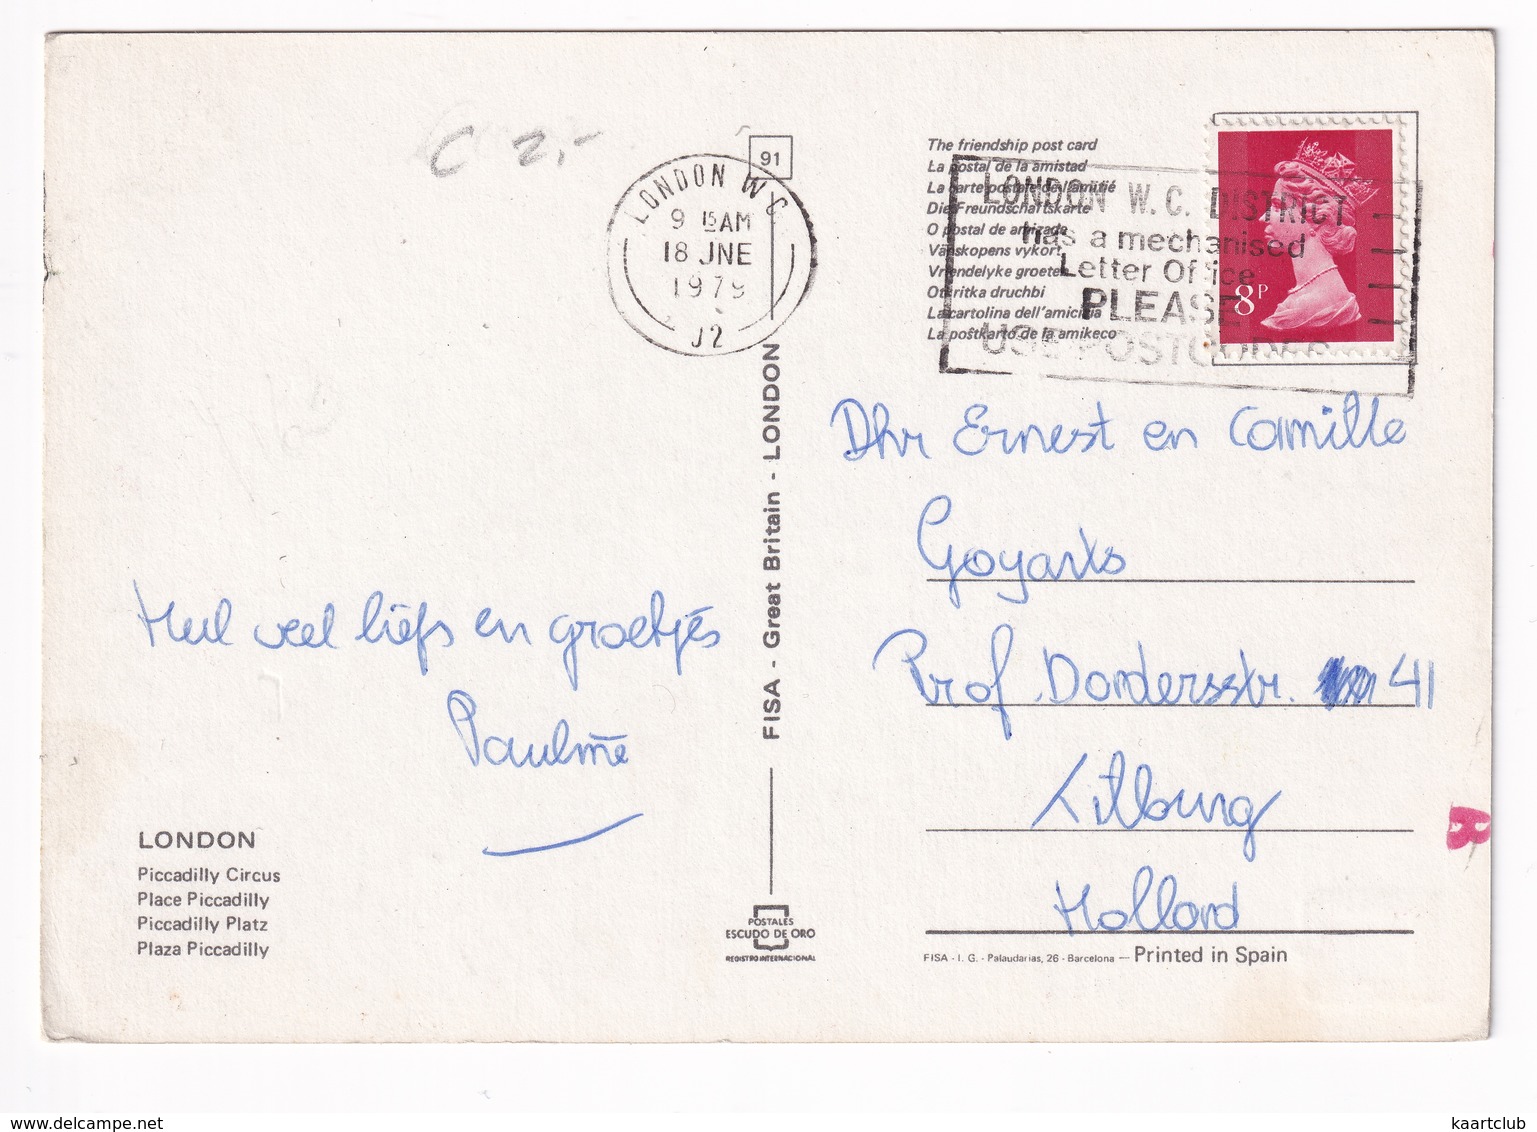 C 2,-
91
LONDON W C
9 15 AM
18 JNE
1979
J2
The friendship post card
La postal de la amistad
La carte postale de l'amitié
Die Freundschaftskarte
O postal de amizade
Vänskopens vykort
Vriendelyke groeten
Otkritka druchbi
La cartolina dell'amicizia
La postkarto de la amikeco
LONDON W.C. DISTRICT
has a mechanised
Letter Office
PLEASE
USE POSTCODES
8P
Dhr Ernest en Camille
Goyarts
Prof. Dondersstr. 41
Tilburg
Holland
Heel veel liefs en groetjes
Pauline
FISA - Great Britain - LONDON
LONDON
Piccadilly Circus
Place Piccadilly
Piccadilly Platz
Plaza Piccadilly
POSTALES
ESCUDO DE ORO
REGISTRO INTERNACIONAL
FISA - I. G. - Palaudarias, 26 - Barcelona — Printed in Spain
kaartclub